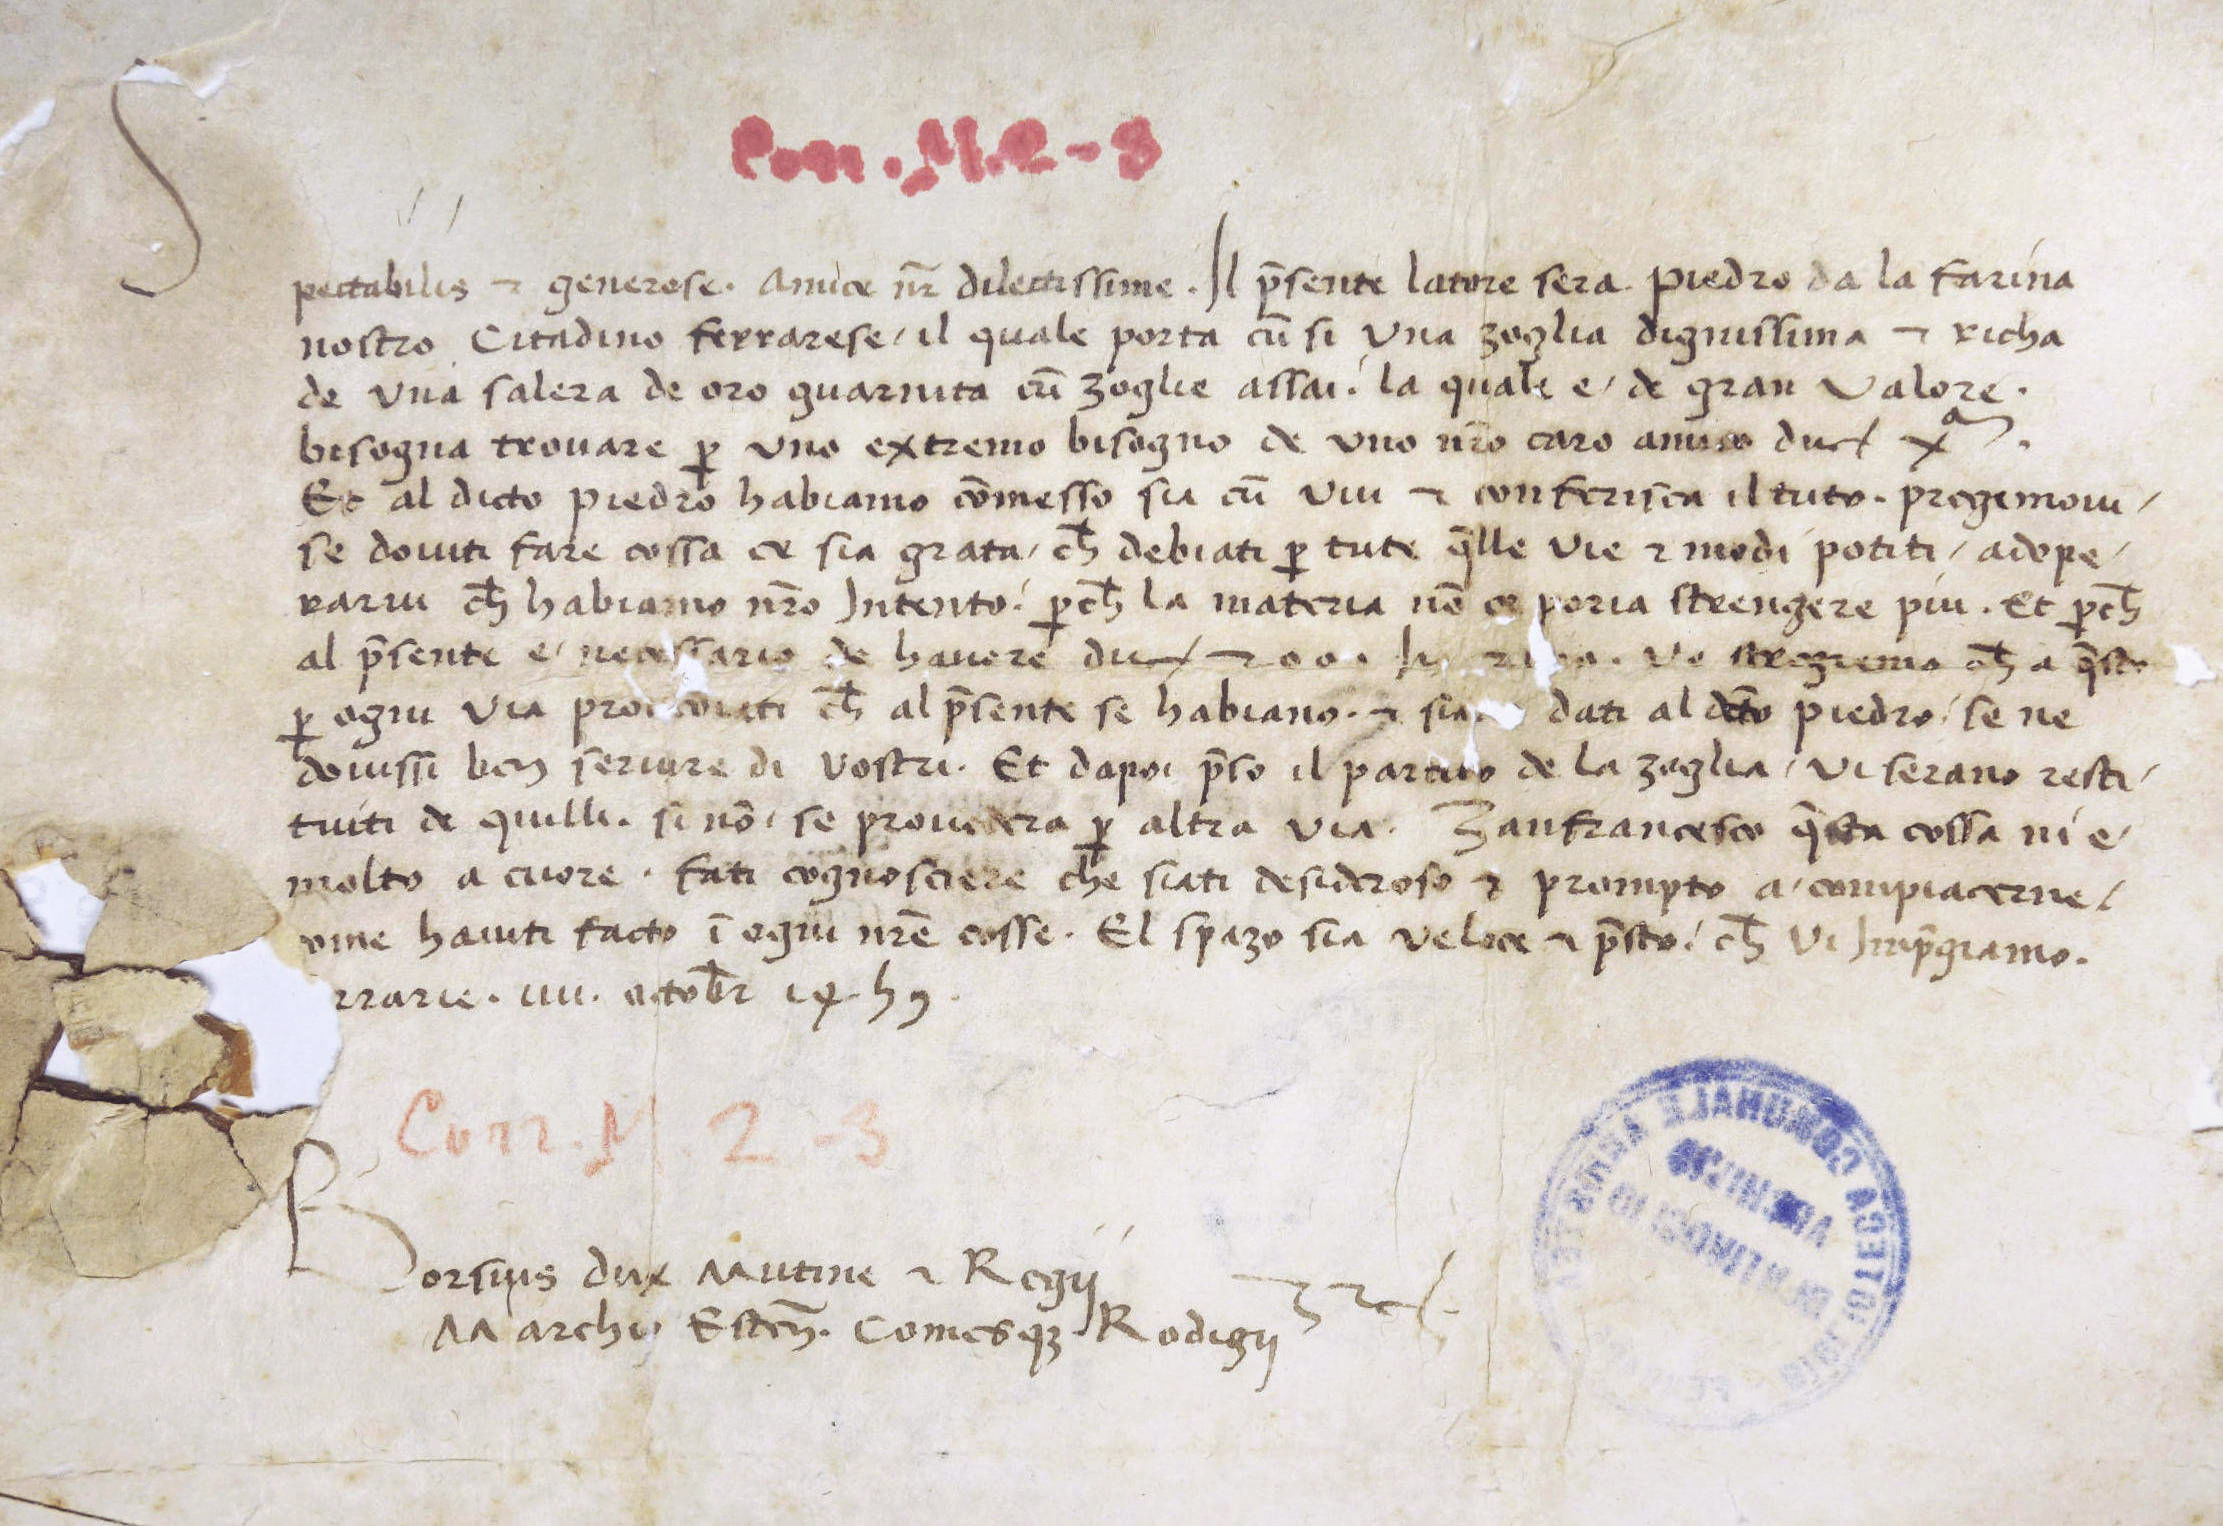 Corr. M. 2 - 3
Spectabilis ⁊ generose. Amice nr̄ dilectissime. Il p̄sente latore sera Piedro da la farina
nostro Citadino ferrarese / il quale porta cū si Una zoglia dignissima ⁊ richa
de una salera de oro guarnita cū zoglie assai / la quale e / de gran Valore.
bisogna trouare ꝑ uno extremo bisogno de uno nr̄o caro amico duc
Et al dicto piedro habiamo cōmesso sia cū Vui ⁊ conferisca il tuto. pregemoui /
se douiti fare cossa ce sia grata / ch̄ debiati ꝑ tute q̄lle Vie ⁊ modi potiti / adope /
rarui ch̄ habiamo nr̄o Intento / ꝑch̄ la materia nō ce poria strengere piu. Et ꝑch̄
al p̄sente e / necessario de hauere duc Ve stregiemo ch̄ a q̄sto
ꝑ ogni Via ch̄ al p̄sente se habiano. ⁊ dati al dc̄to piedro / se ne
douissi ben seruire di Vostri. Et dapoi p̄so il partito de la zoglia / Vi serano resti /
tuiti de quilli. si nō / se prouedera ꝑ altra via. Zanfrancesco q̄sta cossa ni e /
molto a cuore. fati cognosciere che siati desideroso ⁊ prompto a / compiacerne /
ome hauiti facto ī ogni nr̄e cosse. El spazo sia Veloce ⁊ p̄sto / ch̄ Vi Imp̄giamo.
rrarie. iiii. octobr̄ 14h9.
Corr. M. 2 - 3
Borsius dux Mutine ⁊ Regij
Marchio Esten̄. Comesqꝫ Rodigij ⁊c
BIBLIOTECA COMUNALE ARIOSTEA